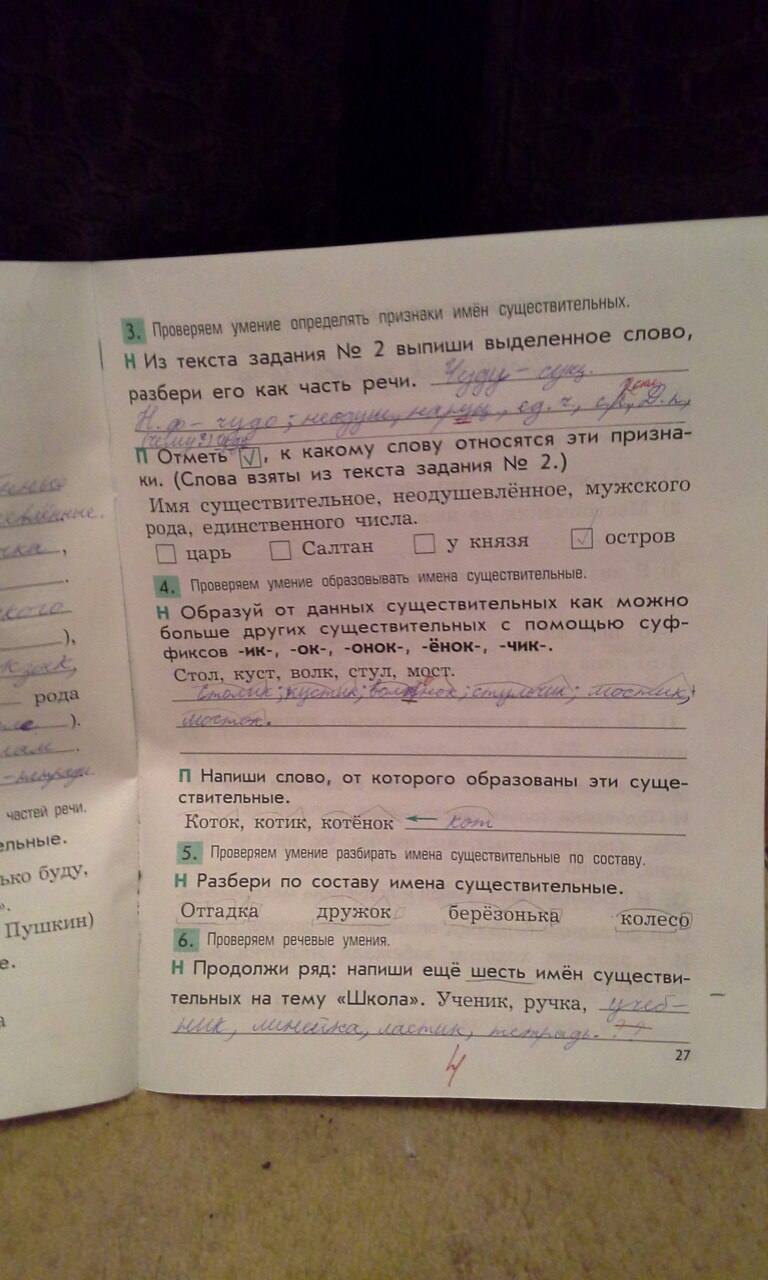 3. Проверяем умение определять признаки имён существительных.
Н Из текста задания № 2 выпиши выделенное слово,
разбери его как часть речи. Чуду – сущ.
Н.ф – чудо; неодуш, нариц, ед. ч, ср, Д.п,
(чему?)
П Отметь ✓, к какому слову относятся эти призна-
ки. (Слова взяты из текста задания № 2.)
Имя существительное, неодушевлённое, мужского
рода, единственного числа.
царь Салтан у князя ✓ остров
4. Проверяем умение образовывать имена существительные.
Н Образуй от данных существительных как можно
больше других существительных с помощью суф-
фиксов -ик-, -ок-, -онок-, -ёнок-, -чик-.
Стол, куст, волк, стул, мост.
столик; кустик; стульчик; мостик,
мосток.
П Напиши слово, от которого образованы эти суще-
ствительные.
Коток, котик, котёнок ← кот
5. Проверяем умение разбирать имена существительные по составу.
Н Разбери по составу имена существительные.
Отгадка дружок берёзонька колесо
6. Проверяем речевые умения.
Н Продолжи ряд: напиши ещё шесть имён существи-
тельных на тему «Школа». Ученик, ручка, учеб-
ник, линейка, ластик, тетрадь. ??
27
4
рода
).
),
.
частей речи.
ельные.
ько буду,
».
Пушкин)
е.
а